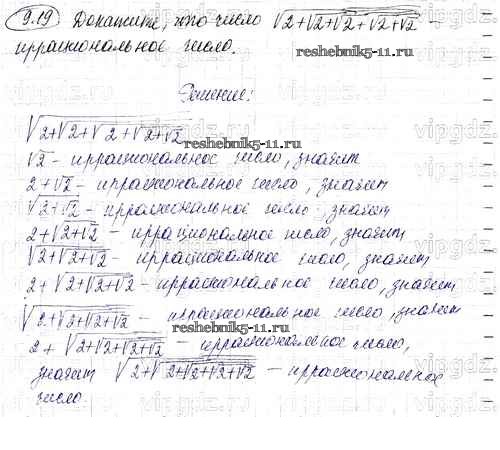 9.19 Докажите, что число √(2+√(2+√(2+√(2+√2))))
иррациональное число.
reshebnik5-11.ru
Решение:
√(2+√(2+√(2+√(2+√2))))
reshebnik5-11.ru
√2 - иррациональное число, значит
2+√2 - иррациональное число, значит
√(2+√2) - иррациональное число значит
2+√(2+√2) - иррациональное число, значит
√(2+√(2+√2)) - иррациональное число, значит
2+√(2+√(2+√2)) - иррациональное число, значит
√(2+√(2+√(2+√2))) - иррациональное число, значит
reshebnik5-11.ru
2+√(2+√(2+√(2+√2))) - иррациональное число,
значит √(2+√(2+√(2+√(2+√2)))) - иррациональное
число.